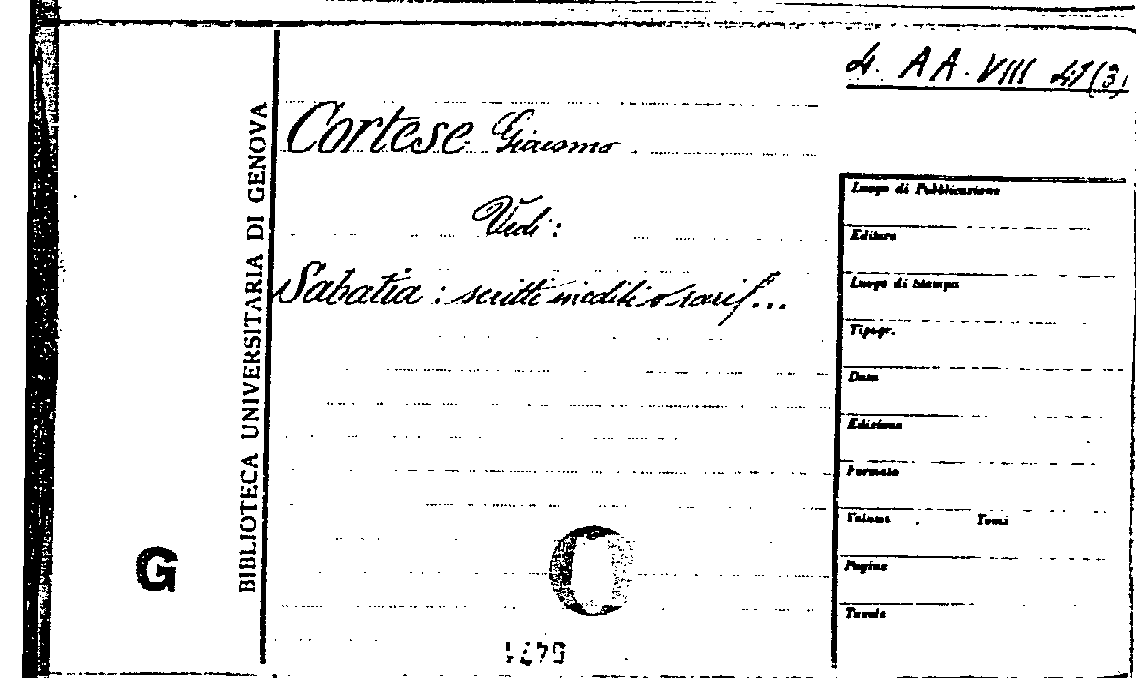 4. AA. VIII 47(3)
Cortese Giacomo.
Vedi:
Sabatia: scritti inediti o rari f...
BIBLIOTECA UNIVERSITARIA DI GENOVA
G
Luogo di Pubblicazione
Editore
Luogo di Stampa
Tipogr.
Data
Edizione
Formato
Volume Tomi
Pagine
Tavole